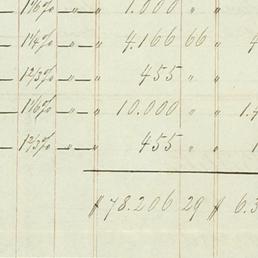 — 1⅙% — " — " 1.000 " "
— 1¼% — " — " 4.166 66 "
— 1⅔% — " — " 455 " "
— 1⅙% — " — " 10.000 " " 1.
— 1⅔% — " — " 455 " " 1
$ 78.206 29 $ 6.3